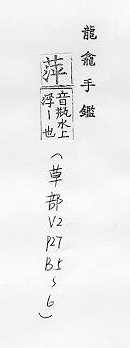 龍龕手鑑
萍
音瓶水上
浮－也
（草部V2P27B5~6）